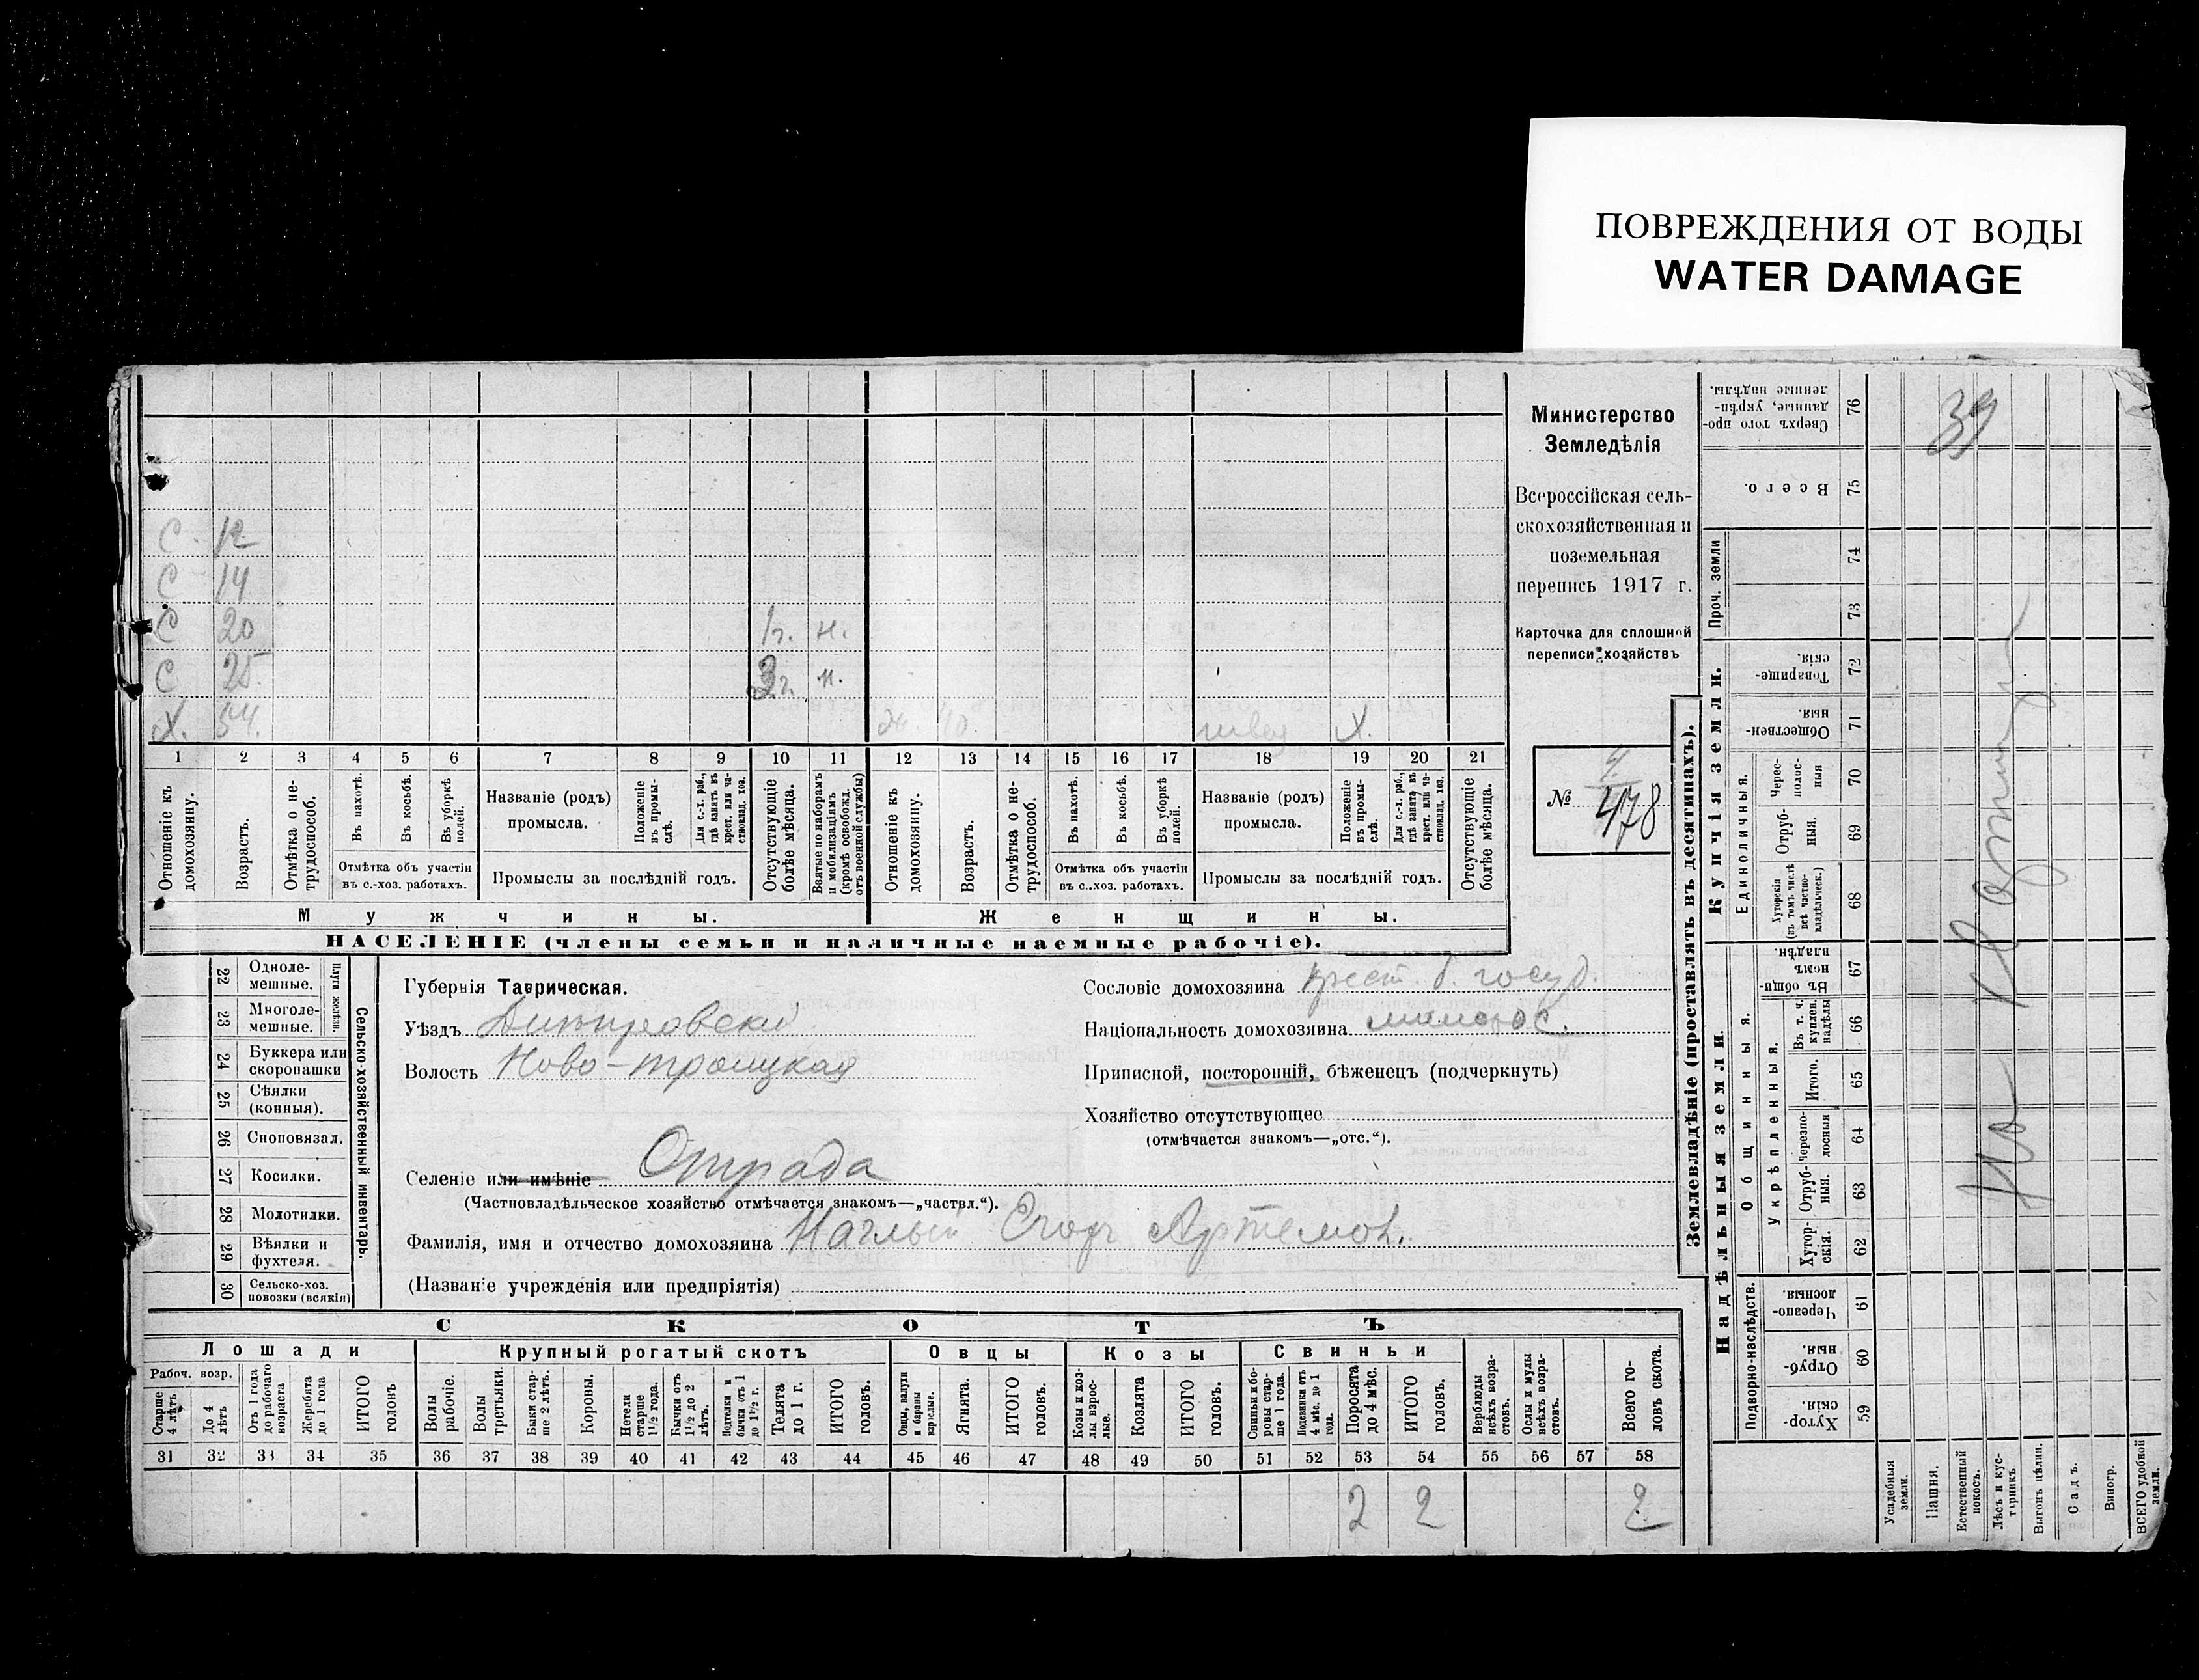 ПОВРЕЖДЕНИЯ ОТ ВОДЫ
WATER DAMAGE
Министерство
Земледѣлія
Всероссійская сель-
скохозяйственная и
поземельная
перепись 1917 г.
Карточка для сплошной
переписи хозяйствъ
№ 478
С. 12
С 14
С 20 1 г. н.
С 25 3 г. н.
Х. 54. ж. 40. швея Х.
1 2 3 4 5 6 7 8 9 10 11 12 13 14 15 16 17 18 19 20 21
Отношеніе къ домохозяину.
Возрастъ.
Отмѣтка о не-трудоспособ.
Въ пахотѣ.
Въ косьбѣ.
Въ уборкѣ полей.
Отмѣтка объ участіи
въ с.-хоз. работахъ.
Названіе (родъ)
промысла.
Положеніе въ промы-слѣ.
Для с.-х. раб., гдѣ занятъ въ крест. или ча-стновлад. хоз.
Промыслы за послѣдній годъ.
Отсутствующіе болѣе мѣсяца.
Взятые по наборамъ и мобилизаціямъ (кромѣ освобожд. отъ военной службы)
Отношеніе къ домохозяину.
Возрастъ.
Отмѣтка о не-трудоспособ.
Въ пахотѣ.
Въ косьбѣ.
Въ уборкѣ полей.
Отмѣтка объ участіи
въ с.-хоз. работахъ.
Названіе (родъ)
промысла.
Положеніе въ промы-слѣ.
Для с.-х. раб., гдѣ занятъ въ крест. или ча-стновлад. хоз.
Промыслы за послѣдній годъ.
Отсутствующіе болѣе мѣсяца.
Мужчины. Женщины.
НАСЕЛЕНІЕ (члены семьи и наличные наемные рабочіе).
Сельско-хозяйственный инвентарь.
Плуги желѣзн.
22 Одноле-мешные.
23 Многоле-мешные.
24 Буккера или скоропашки
25 Сѣялки (конныя).
26 Сноповязал.
27 Косилки.
28 Молотилки.
29 Вѣялки и фухтеля.
30 Сельско-хоз. повозки (всякія)
Губернія Таврическая.
Уѣздъ Днепровски
Волость Ново-троицкая
Селеніе или имѣніе Отрада
(Частновладѣльческое хозяйство отмѣчается знакомъ—„частвл.“).
Фамилія, имя и отчество домохозяина Наглый Егоръ Артемов.
(Названіе учрежденія или предпріятія)
Сословіе домохозяина крест. б. госуд.
Національность домохозяина малорос.
Приписной, посторонній, бѣженецъ (подчеркнуть)
Хозяйство отсутствующее
(отмѣчается знакомъ—„отс.“).
СКОТЪ
Лошади Крупный рогатый скотъ Овцы Козы Свиньи
Рабоч. возр.
Старше 4 лѣтъ
До 4 лѣтъ
Отъ 1 года до рабочаго возраста
Жеребята до 1 года
ИТОГО головъ
Волы рабочіе.
Волы третьяки.
Быки стар-ше 2 лѣтъ.
Коровы.
Нетели старше 1½ года.
Бычки отъ 1½ до 2 лѣтъ.
Подтелки и бычки отъ 1 до 1½ г.
Телята до 1 г.
ИТОГО головъ.
Овцы, валухи и бараны взрослые.
Ягнята.
ИТОГО головъ.
Козы и коз-лы взрос-лые.
Козлята
ИТОГО головъ.
Свиньи и бо-ровы стар-ше 1 года.
Подсвинки отъ 4 мѣс. до 1 года.
Поросята до 4 мѣс.
ИТОГО головъ.
Верблюды всѣхъ возра-стовъ.
Ослы и мулы всѣхъ возра-стовъ.
Всего го-ловъ скота.
31 32 33 34 35 36 37 38 39 40 41 42 43 44 45 46 47 48 49 50 51 52 53 54 55 56 57 58
2 2 2
Землевладѣніе (проставлять въ десятинахъ).
Надѣльныя земли.
Подворно-наслѣдств.
Хутор-скія. 59
Отруб-ныя. 60
Черезпо-лосныя. 61
Общинныя.
Укрѣпленныя.
Хутор-скія. 62
Отруб-ныя. 63
Черезпо-лосныя 64
Итого. 65
Въ т. ч. куплен. надѣлы 66
Въ общи-номъ владѣн. 67
Купчія земли.
Единоличныя.
Хуторскія (въ томъ числѣ всѣ частно-владѣльческ.) 68
Отруб-ныя. 69
Черес-полос-ныя 70
Обществен-ныя. 71
Товарище-скія. 72
Проч. земли
73
74
Всего. 75
Сверхъ того про-данные, укрѣп-ленные надѣлы. 76
39
На квартир
Усадебныя земли.
Пашня.
Естественный покосъ.
Лѣсъ и кус-тарникъ
Выгонъ цѣлин.
Садъ.
Виногр.
ВСЕГО удобной земли.